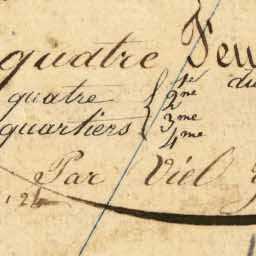 quatre Feu
du
quatre
quartiers
1e
2me
3me
4me
Par Viel
124